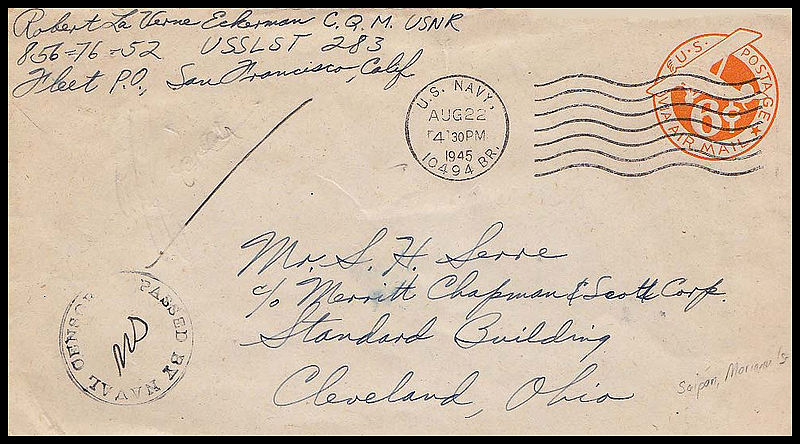 Robert La Verne Eckerman C.Q.M. USNR
856-76-52 USSLST 283
Fleet P.O., San Francisco, Calif
U.S. NAVY,
AUG 22
4 30PM
1945
10494 BR.
U.S. POSTAGE
6¢
VIA AIR MAIL
Mr. S. H. Serre
c/o Merritt Chapman & Scott Corp.
Standard Building
Cleveland, Ohio
PASSED BY NAVAL CENSOR
Saipan,